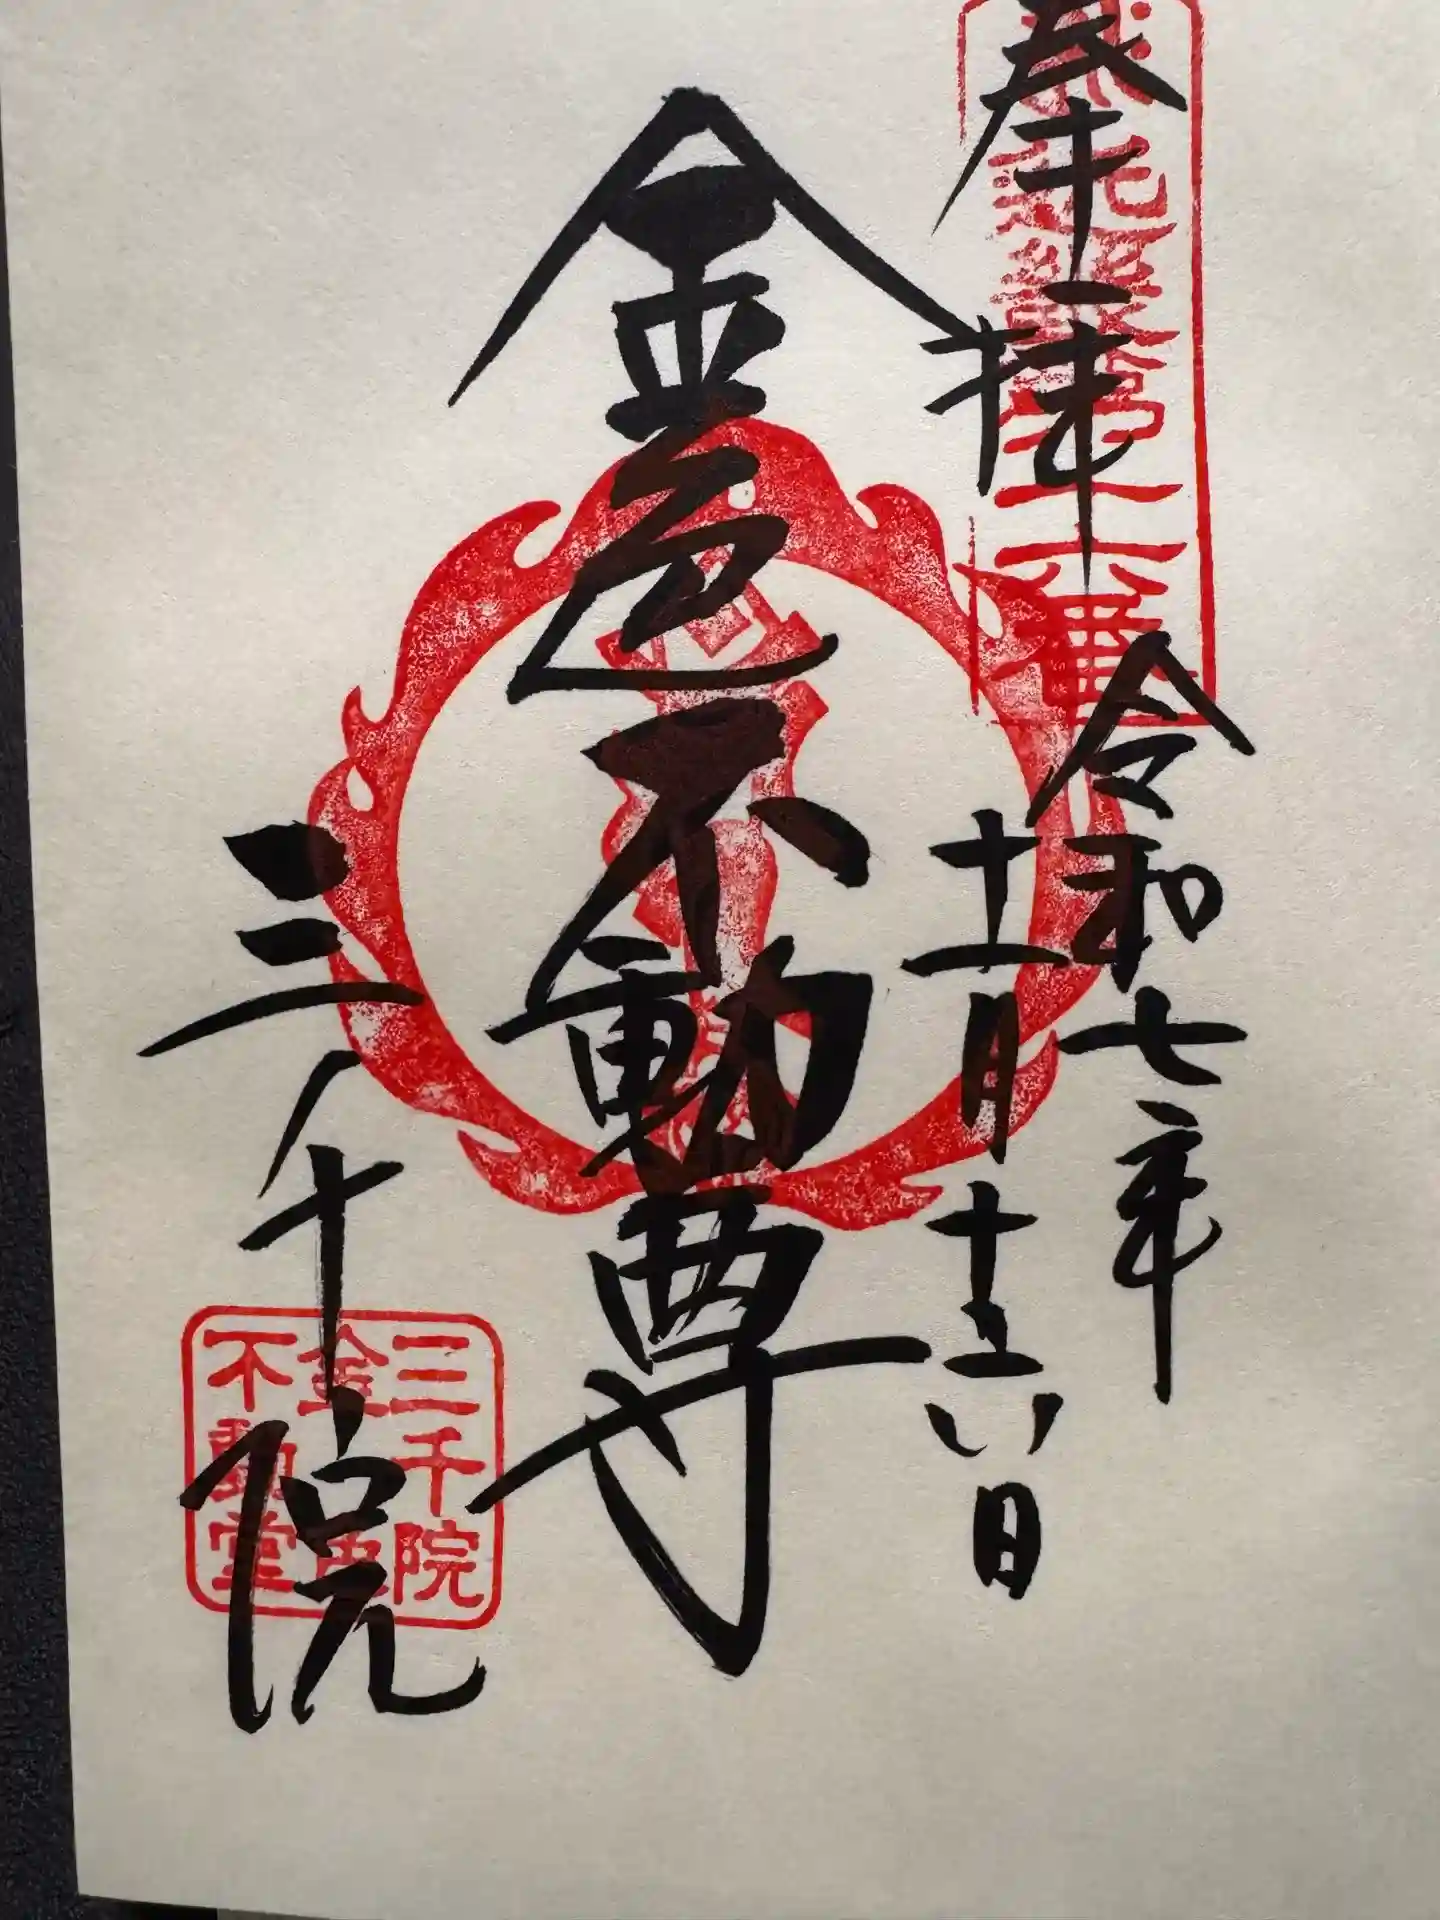 奉拝
十六番
令和七年
十一月十六日
金色不動尊
三千院
三千院
金色
不動堂